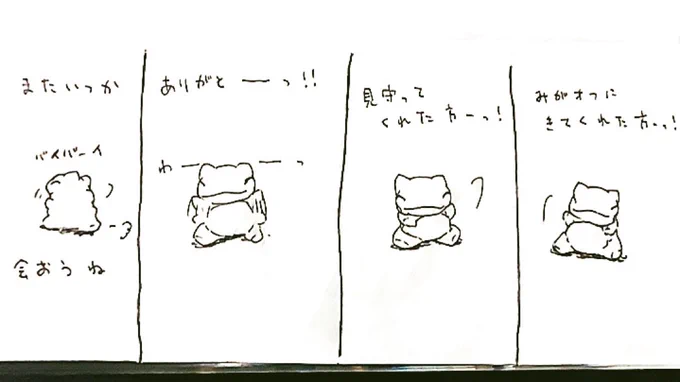 みがオフに
きてくれた方ーっ!
見守って
くれた方ーっ!
ありがとーっ!!
わーーっ
またいつか
バイバーイ
会おうね